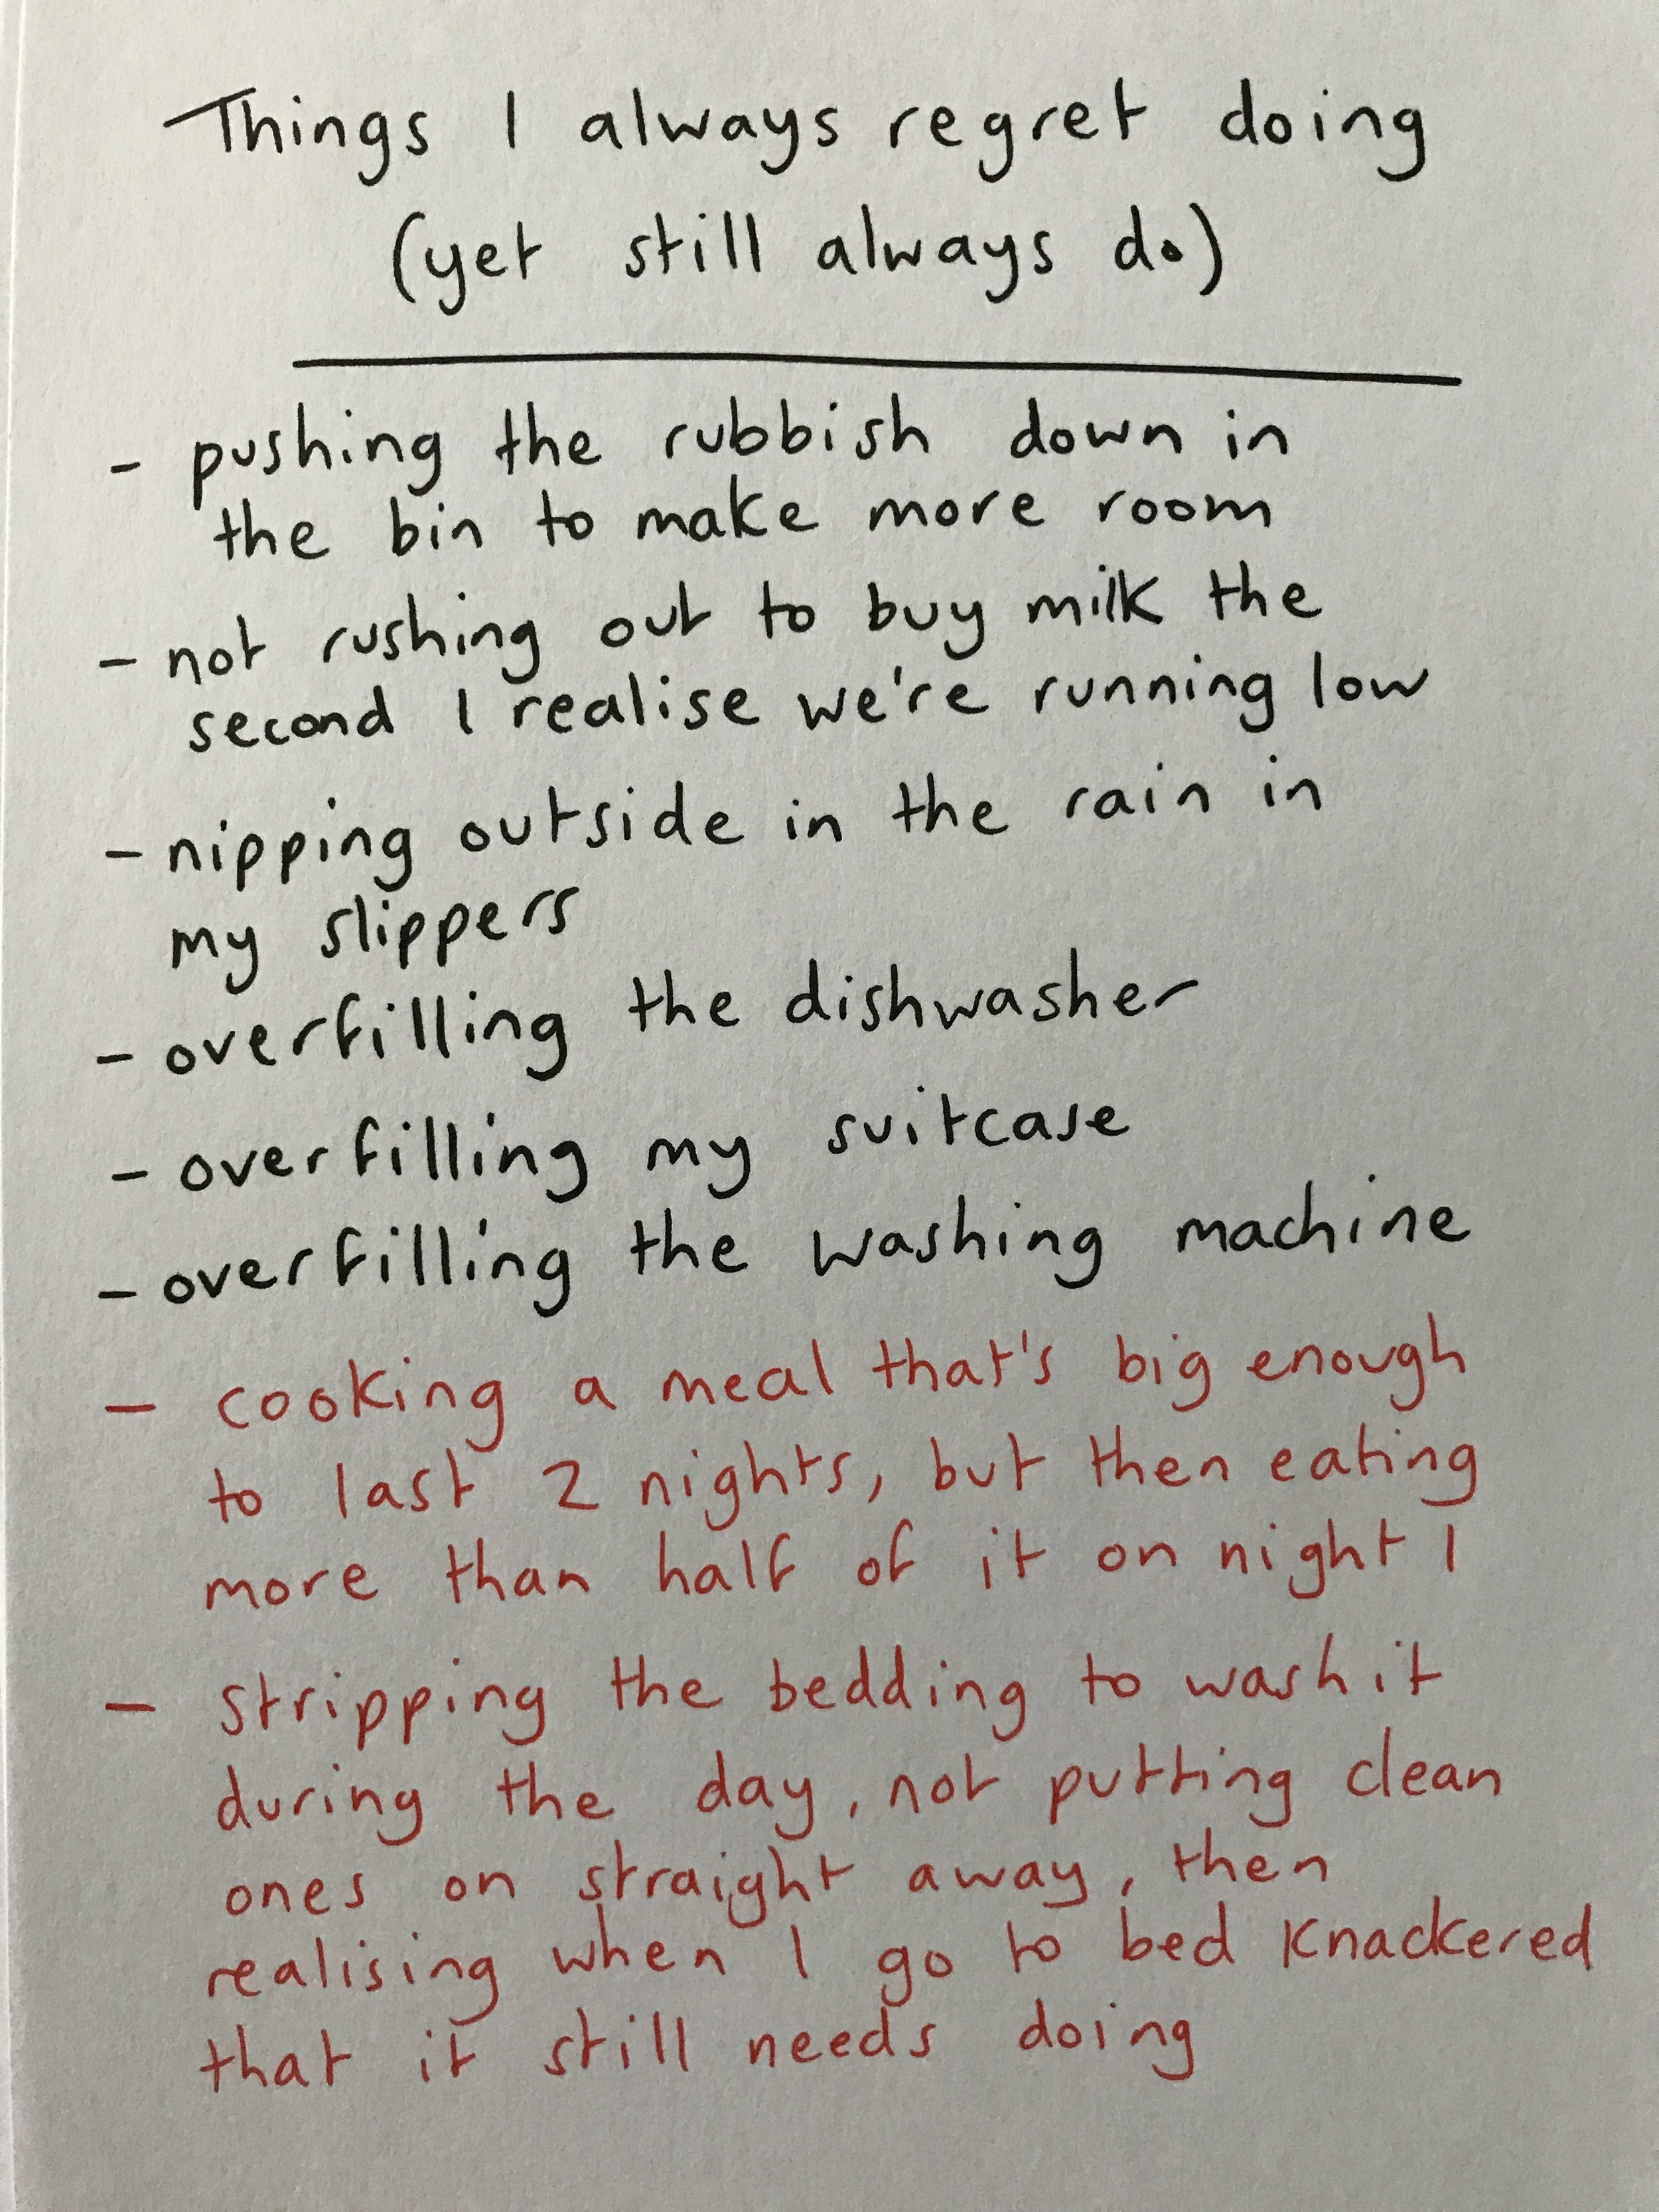 Things I always regret doing
(yet still always do)
- pushing the rubbish down in
the bin to make more room
- not rushing out to buy milk the
second I realise we're running low
- nipping outside in the rain in
my slippers
- overfilling the dishwasher
- overfilling my suitcase
- overfilling the washing machine
- cooking a meal that's big enough
to last 2 nights, but then eating
more than half of it on night 1
- stripping the bedding to wash it
during the day, not putting clean
ones on straight away, then
realising when I go to bed knackered
that it still needs doing